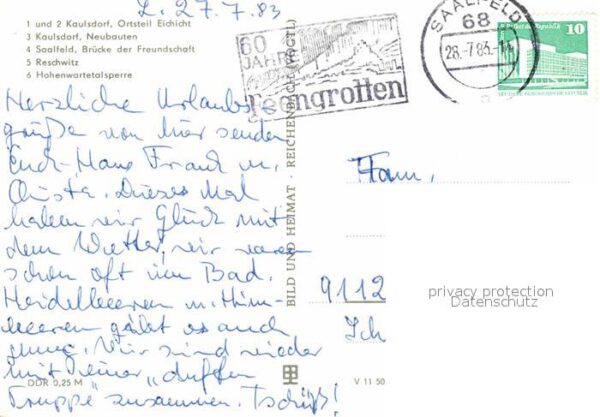 L. 27.7.83
1 und 2 Kaulsdorf, Ortsteil Eichicht
3 Kaulsdorf, Neubauten
4 Saalfeld, Brücke der Freundschaft
5 Reschwitz
6 Hohenwartetalsperre
60
JAHRE
Feengrotten
SAALFELD
68
28.-7.83.-14
10
Herzliche Urlaubs-
grüße von hier senden
Euch Hans Frank u.
Christa. Dieses Mal
haben wir Glück mit
dem Wetter, wir waren
schon oft im Bad.
Heidelbeeren u. Him-
beeren gibt es auch
Wir sind wieder
mit einer „duften
Truppe" zusammen. Tschüß!
BILD UND HEIMAT · REICHENBACH (VOGTL)
Fam.
9112
privacy protection
Datenschutz
DDR 0,25 M
V 11 50